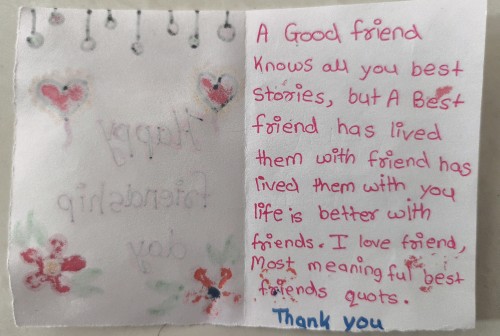 Happy
friendship
day
A Good friend
Knows all you best
stories, but A Best
friend has lived
them with friend has
lived them with you
life is better with
friends. I love friend,
Most meaningful best
friends quots.
Thank you